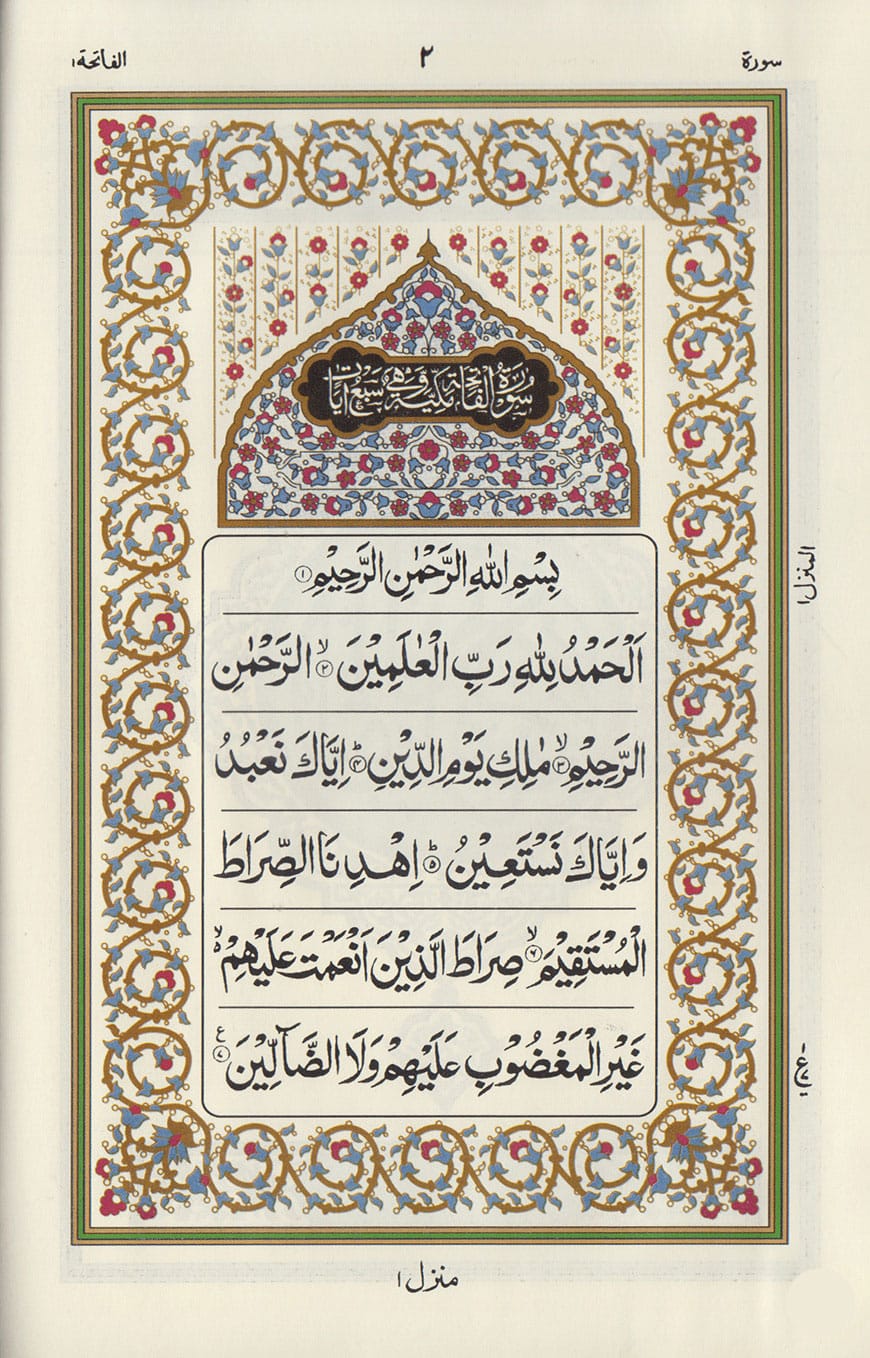 سورة
٢
الفاتحة ١
سُوْرَةُ الْفَاتِحَةِ مَكِّيَّةٌ وَّهِيَ سَبْعُ اٰيَاتٍ
بِسْمِ اللّٰهِ الرَّحْمٰنِ الرَّحِيْمِ ١
اَلْحَمْدُ لِلّٰهِ رَبِّ الْعٰلَمِيْنَ ۙ ٢ الرَّحْمٰنِ
الرَّحِيْمِ ۙ ٣ مٰلِكِ يَوْمِ الدِّيْنِ ؕ ٤ اِيَّاكَ نَعْبُدُ
وَاِيَّاكَ نَسْتَعِيْنُ ؕ ٥ اِهْدِنَا الصِّرَاطَ
الْمُسْتَقِيْمَ ۙ ٦ صِرَاطَ الَّذِيْنَ اَنْعَمْتَ عَلَيْهِمْ ۙ۬
غَيْرِ الْمَغْضُوْبِ عَلَيْهِمْ وَلَا الضَّآلِّيْنَ ٧ ع
المنزل ١
منزل ١